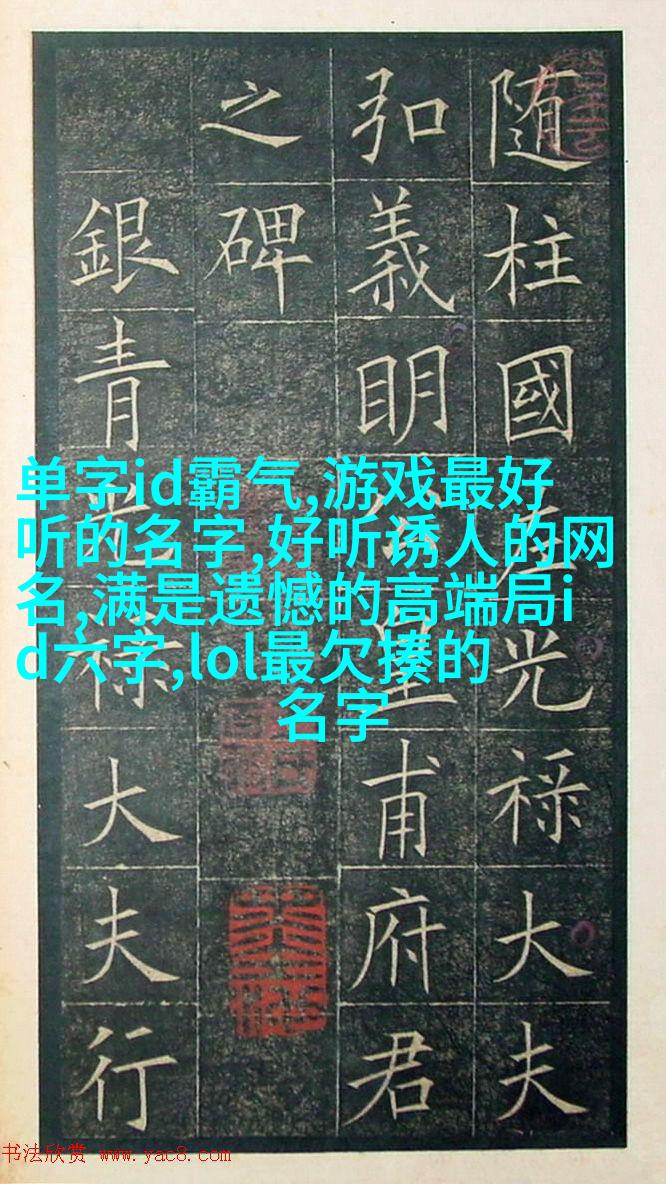 随柱國左光禄大夫
弘義明皇甫府君
之碑
銀青光禄大夫行
单字id霸气,游戏最好
听的名字,好听诱人的网
名,满是遗憾的高端局i
d六字,lol最欠揍的
名字
书法欣赏 www.yac8.com